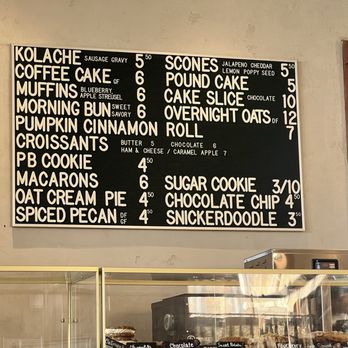 KOLACHE SAUSAGE GRAVY 5⁵⁰
COFFEE CAKE GF 6
MUFFINS BLUEBERRY APPLE STREUSEL 6
MORNING BUN SWEET SAVORY 6
PUMPKIN CINNAMON ROLL 7
CROISSANTS BUTTER 5 CHOCOLATE 6
HAM & CHEESE / CARAMEL APPLE 7
PB COOKIE 4⁵⁰
MACARONS 6
OAT CREAM PIE 4⁵⁰
SPICED PECAN DF GF 4⁵⁰
SCONES JALAPENO CHEDDAR LEMON POPPY SEED 5⁵⁰
POUND CAKE 5
CAKE SLICE CHOCOLATE 10
OVERNIGHT OATS DF 12
SUGAR COOKIE 3/10
CHOCOLATE CHIP 4⁵⁰
SNICKERDOODLE 3⁵⁰
Chocolate